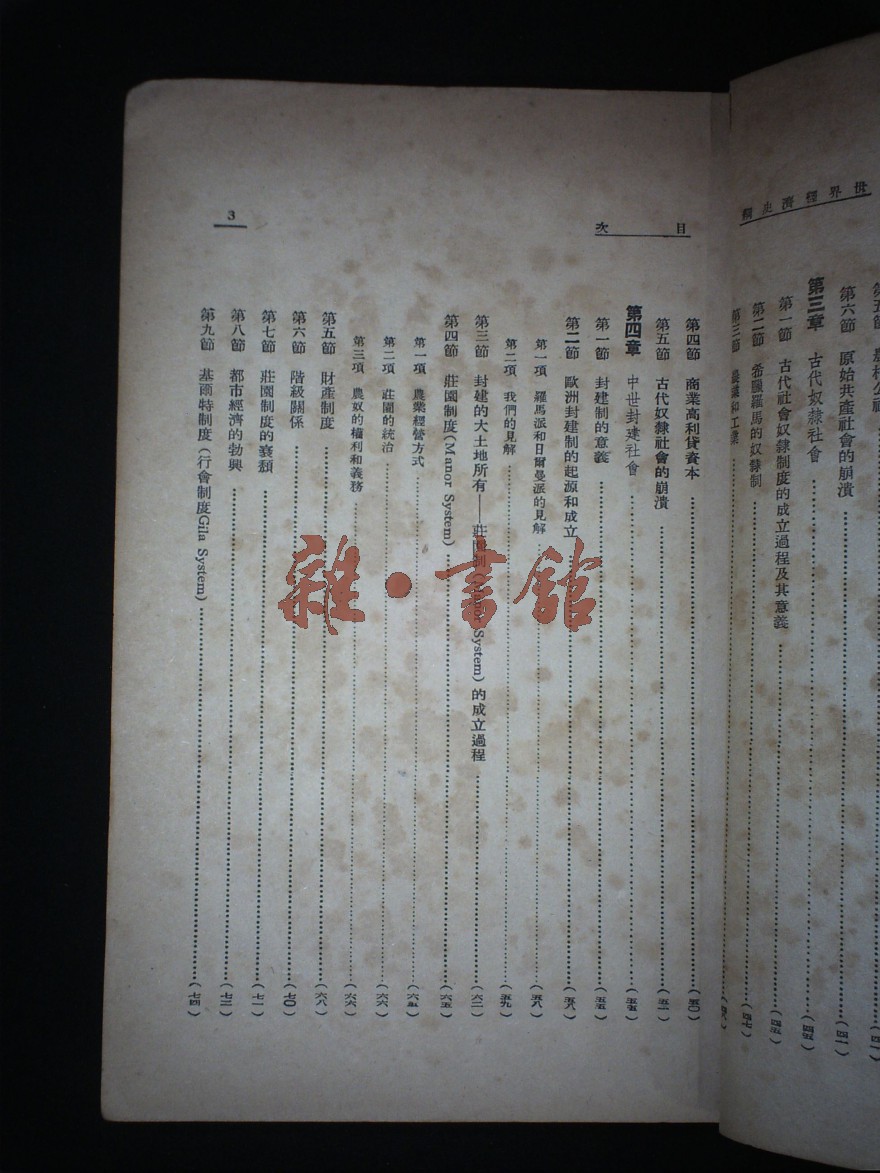 世界經濟史綱
第六節 原始共產社會的崩潰……(四一)
第三章 古代奴隸社會……(四五)
第一節 古代社會奴隸制度的成立過程及其意義……(四五)
第二節 希臘羅馬的奴隸制……(四七)
第三節 農業和工業……
目次
第四節 商業高利貸資本……(五〇)
第五節 古代奴隸社會的崩潰……(五一)
第四章 中世封建社會……(五五)
第一節 封建制的意義……(五五)
第二節 歐洲封建制的起源和成立……(五八)
第一項 羅馬派和日爾曼派的見解……(五八)
第二項 我們的見解……(五九)
第三節 封建的大土地所有——莊園制(Manor System)的成立過程……(六二)
第四節 莊園制度(Manor System)……(六五)
第一項 農業經營方式……(六五)
第二項 莊園的統治……(六六)
第三項 農奴的權利和義務……(六六)
第五節 財產制度……(六八)
第六節 階級關係……(七〇)
第七節 莊園制度的衰頹……(七一)
第八節 都市經濟的勃興……(七二)
第九節 基爾特制度(行會制度Gila System)……(七四)
3
雜·書館